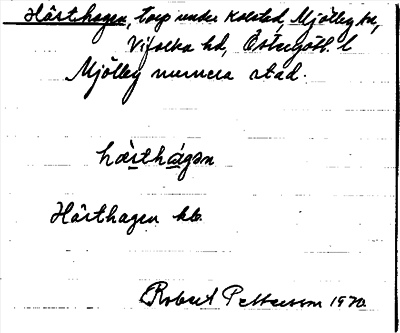 Hästhagen, torp under Kolstad, Mjölby sn,
Vifolka hd, Östergötl. l
Mjölby numera stad.
hæ̀sthágən
Hästhagen kb.
Robert Petterson 1970